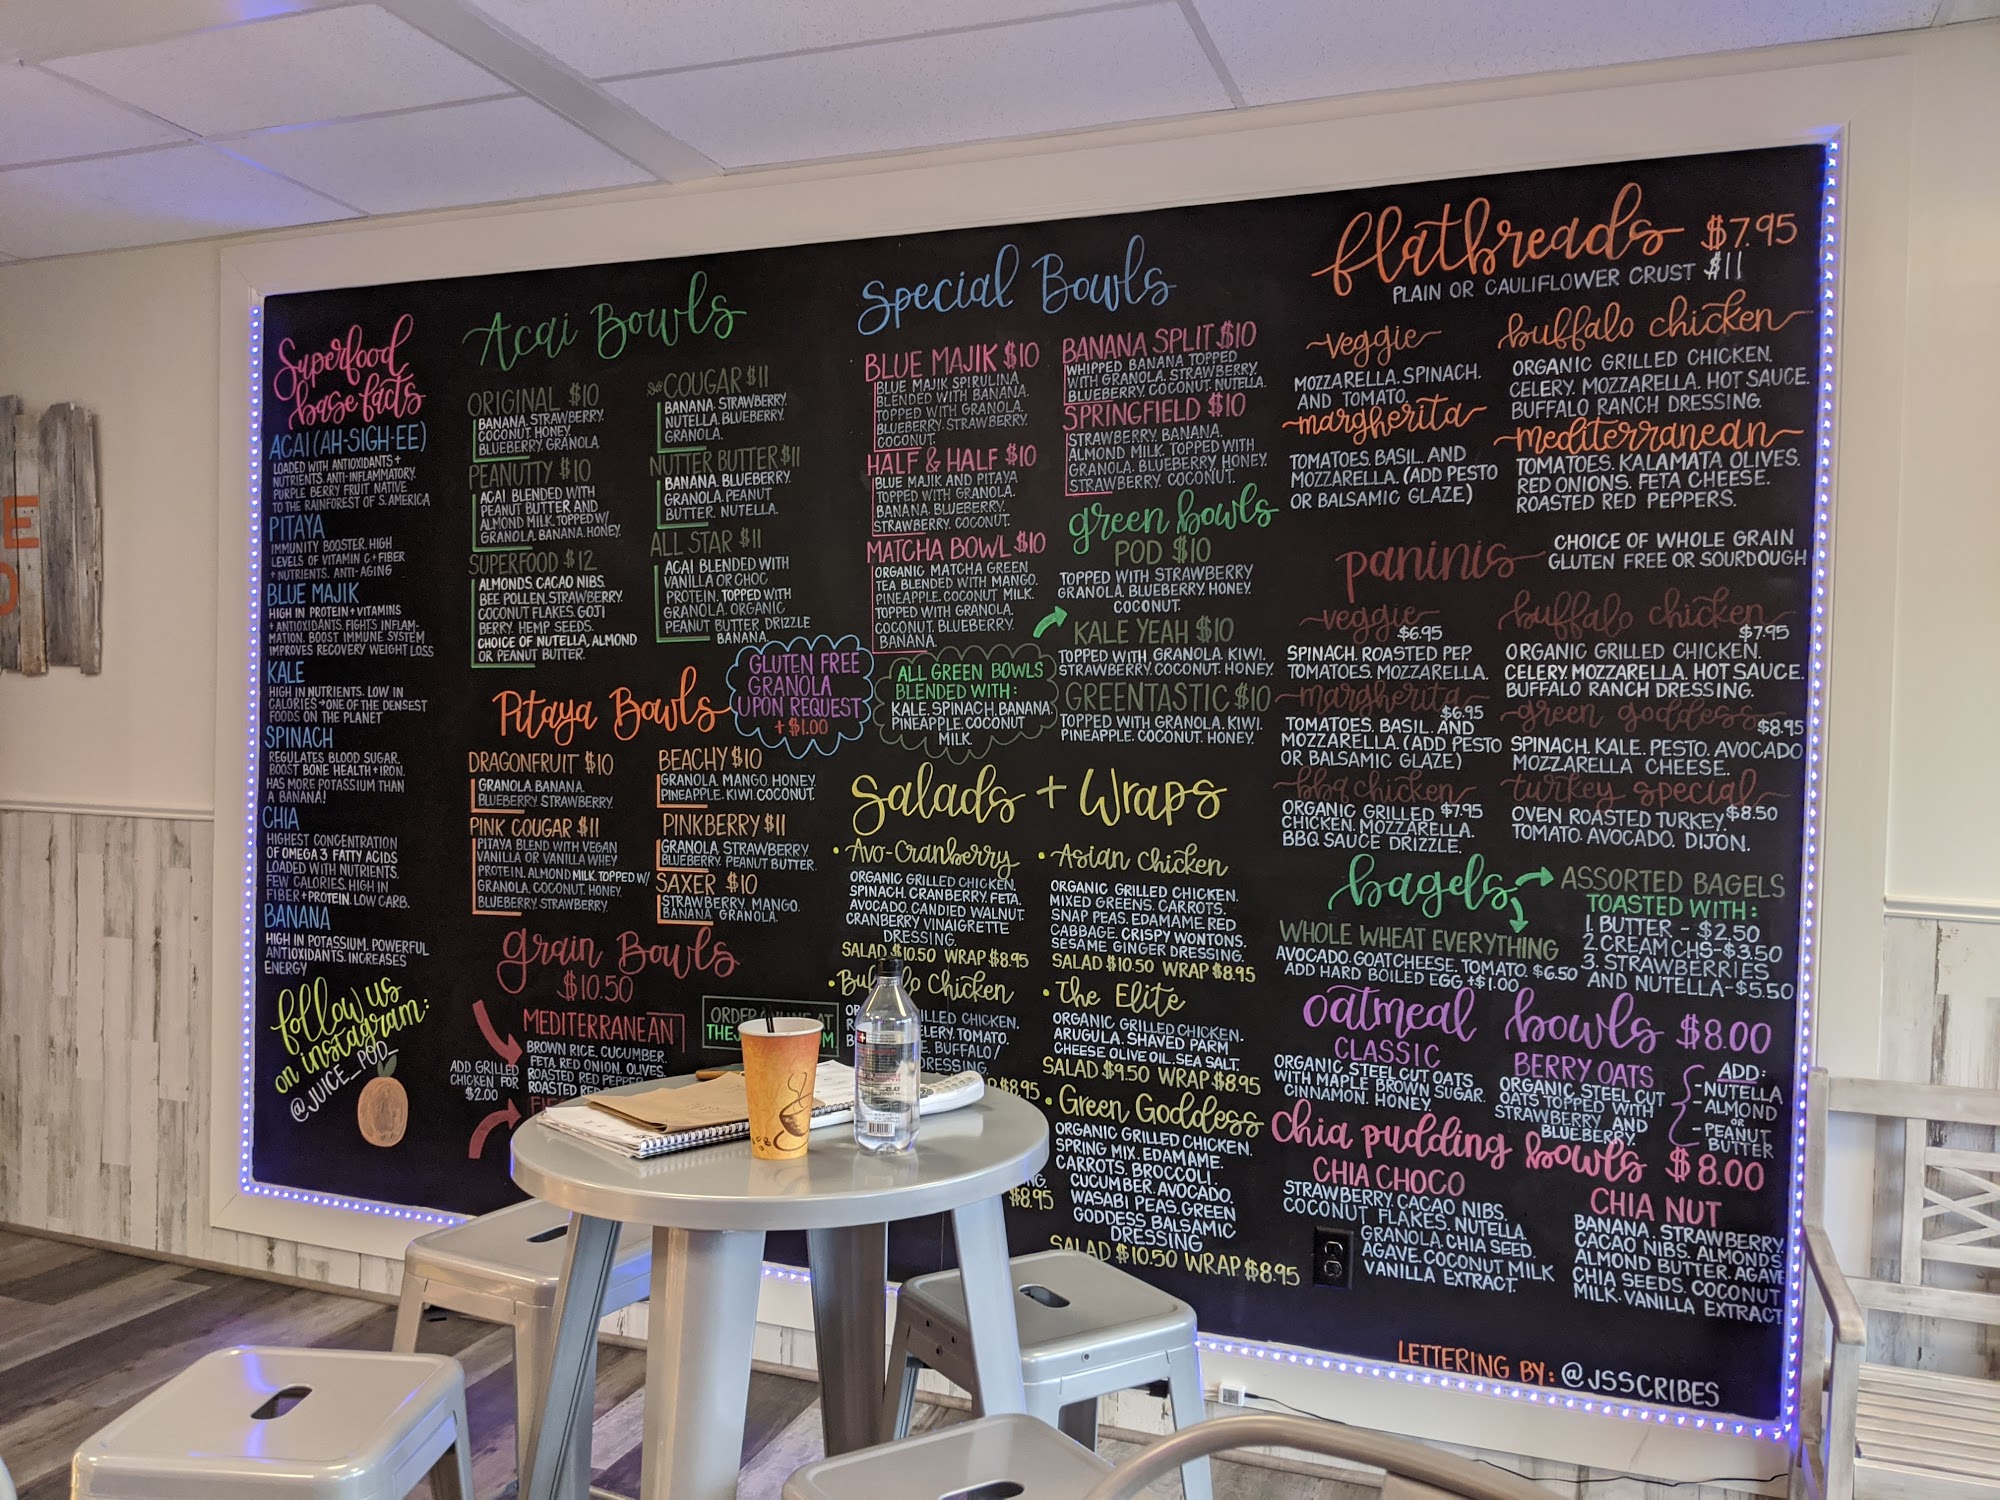 E
Superfood
base facts
ACAI (AH-SIGH-EE)
LOADED WITH ANTIOXIDANTS +
NUTRIENTS. ANTI-INFLAMMATORY.
PURPLE BERRY FRUIT NATIVE
TO THE RAINFOREST OF S. AMERICA
PITAYA
IMMUNITY BOOSTER. HIGH
LEVELS OF VITAMIN C + FIBER
+ NUTRIENTS. ANTI-AGING
BLUE MAJIK
HIGH IN PROTEIN + VITAMINS
+ ANTIOXIDANTS. FIGHTS INFLAM-
MATION. BOOST IMMUNE SYSTEM
IMPROVES RECOVERY WEIGHT LOSS
KALE
HIGH IN NUTRIENTS. LOW IN
CALORIES → ONE OF THE DENSEST
FOODS ON THE PLANET
SPINACH
REGULATES BLOOD SUGAR.
BOOST BONE HEALTH + IRON.
HAS MORE POTASSIUM THAN
A BANANA!
CHIA
HIGHEST CONCENTRATION
OF OMEGA 3 FATTY ACIDS
LOADED WITH NUTRIENTS.
FEW CALORIES. HIGH IN
FIBER + PROTEIN. LOW CARB.
BANANA
HIGH IN POTASSIUM. POWERFUL
ANTIOXIDANTS. INCREASES
ENERGY
follow us
on instagram:
@JUICE_POD_
Acai Bowls
ORIGINAL $10
BANANA. STRAWBERRY.
COCONUT. HONEY.
BLUEBERRY. GRANOLA.
PEANUTTY $10
ACAI BLENDED WITH
PEANUT BUTTER AND
ALMOND MILK. TOPPED W/
GRANOLA. BANANA. HONEY.
SUPERFOOD $12
ALMONDS. CACAO NIBS.
BEE POLLEN. STRAWBERRY.
COCONUT FLAKES. GOJI
BERRY. HEMP SEEDS.
CHOICE OF NUTELLA, ALMOND
OR PEANUT BUTTER.
COUGAR $11
BANANA. STRAWBERRY.
NUTELLA. BLUEBERRY.
GRANOLA.
NUTTER BUTTER $11
BANANA. BLUEBERRY.
GRANOLA. PEANUT
BUTTER. NUTELLA.
ALL STAR $11
ACAI BLENDED WITH
VANILLA OR CHOC
PROTEIN. TOPPED WITH
GRANOLA. ORGANIC
PEANUT BUTTER DRIZZLE
BANANA.
GLUTEN FREE
GRANOLA
UPON REQUEST
+ $1.00
Pitaya Bowls
DRAGONFRUIT $10
GRANOLA. BANANA.
BLUEBERRY. STRAWBERRY.
PINK COUGAR $11
PITAYA BLEND WITH VEGAN
VANILLA OR VANILLA WHEY
PROTEIN. ALMOND MILK. TOPPED W/
GRANOLA. COCONUT. HONEY.
BLUEBERRY. STRAWBERRY.
BEACHY $10
GRANOLA. MANGO. HONEY.
PINEAPPLE. KIWI. COCONUT.
PINKBERRY $11
GRANOLA. STRAWBERRY.
BLUEBERRY. PEANUT BUTTER.
SAXER $10
STRAWBERRY. MANGO.
BANANA. GRANOLA.
Grain Bowls
$10.50
MEDITERRANEAN
BROWN RICE. CUCUMBER.
FETA. RED ONION. OLIVES.
ROASTED RED PEPPER
ROASTED
ADD GRILLED
CHICKEN FOR
$2.00
ORDER ONLINE AT
Special Bowls
BLUE MAJIK $10
BLUE MAJIK SPIRULINA
BLENDED WITH BANANA.
TOPPED WITH GRANOLA.
BLUEBERRY. STRAWBERRY.
COCONUT.
HALF & HALF $10
BLUE MAJIK AND PITAYA
TOPPED WITH GRANOLA.
BANANA. BLUEBERRY.
STRAWBERRY. COCONUT.
MATCHA BOWL $10
ORGANIC MATCHA GREEN
TEA BLENDED WITH MANGO.
PINEAPPLE. COCONUT MILK.
TOPPED WITH GRANOLA.
COCONUT. BLUEBERRY.
BANANA.
BANANA SPLIT $10
WHIPPED BANANA TOPPED
WITH GRANOLA. STRAWBERRY.
BLUEBERRY. COCONUT. NUTELLA.
SPRINGFIELD $10
STRAWBERRY. BANANA.
ALMOND MILK. TOPPED WITH
GRANOLA. BLUEBERRY. HONEY.
STRAWBERRY. COCONUT.
green bowls
POD $10
TOPPED WITH STRAWBERRY
GRANOLA. BLUEBERRY. HONEY.
COCONUT.
KALE YEAH $10
TOPPED WITH GRANOLA. KIWI.
STRAWBERRY. COCONUT. HONEY.
GREENTASTIC $10
TOPPED WITH GRANOLA. KIWI.
PINEAPPLE. COCONUT. HONEY.
ALL GREEN BOWLS
BLENDED WITH:
KALE. SPINACH. BANANA.
PINEAPPLE. COCONUT
MILK.
Salads + Wraps
• Avo-Cranberry
ORGANIC GRILLED CHICKEN.
SPINACH. CRANBERRY. FETA.
AVOCADO. CANDIED WALNUT.
CRANBERRY VINAIGRETTE
DRESSING.
SALAD $10.50 WRAP $8.95
• Buffalo Chicken
GRILLED CHICKEN.
CELERY. TOMATO.
BUFFALO/
DRESSING.
$8.95
$8.95
• Asian Chicken
ORGANIC GRILLED CHICKEN.
MIXED GREENS. CARROTS.
SNAP PEAS. EDAMAME. RED
CABBAGE. CRISPY WONTONS.
SESAME GINGER DRESSING.
SALAD $10.50 WRAP $8.95
• The Elite
ORGANIC GRILLED CHICKEN.
ARUGULA. SHAVED PARM
CHEESE. OLIVE OIL. SEA SALT.
SALAD $9.50 WRAP $8.95
• Green Goddess
ORGANIC GRILLED CHICKEN.
SPRING MIX. EDAMAME.
CARROTS. BROCCOLI.
CUCUMBER. AVOCADO.
WASABI PEAS. GREEN
GODDESS BALSAMIC
DRESSING
SALAD $10.50 WRAP $8.95
flatbreads $7.95
PLAIN OR CAULIFLOWER CRUST $11
veggie
MOZZARELLA. SPINACH.
AND TOMATO.
margherita
TOMATOES. BASIL. AND
MOZZARELLA. (ADD PESTO
OR BALSAMIC GLAZE)
buffalo chicken
ORGANIC GRILLED CHICKEN.
CELERY. MOZZARELLA. HOT SAUCE.
BUFFALO RANCH DRESSING.
mediterranean
TOMATOES. KALAMATA OLIVES.
RED ONIONS. FETA CHEESE.
ROASTED RED PEPPERS.
paninis
CHOICE OF WHOLE GRAIN
GLUTEN FREE OR SOURDOUGH
veggie
$6.95
SPINACH. ROASTED PEP.
TOMATOES. MOZZARELLA.
margherita
$6.95
TOMATOES. BASIL. AND
MOZZARELLA. (ADD PESTO
OR BALSAMIC GLAZE)
bbq chicken
ORGANIC GRILLED $7.95
CHICKEN. MOZZARELLA.
BBQ SAUCE DRIZZLE.
buffalo chicken
$7.95
ORGANIC GRILLED CHICKEN.
CELERY. MOZZARELLA. HOT SAUCE.
BUFFALO RANCH DRESSING.
green goddess
$8.95
SPINACH. KALE. PESTO. AVOCADO
MOZZARELLA CHEESE.
turkey special
OVEN ROASTED TURKEY. $8.50
TOMATO. AVOCADO. DIJON.
bagels
WHOLE WHEAT EVERYTHING
AVOCADO. GOAT CHEESE. TOMATO. $6.50
ADD HARD BOILED EGG +$1.00
ASSORTED BAGELS
TOASTED WITH:
1. BUTTER - $2.50
2. CREAM CHS-$3.50
3. STRAWBERRIES
AND NUTELLA-$5.50
oatmeal bowls $8.00
CLASSIC
ORGANIC STEEL CUT OATS
WITH MAPLE BROWN SUGAR.
CINNAMON. HONEY.
BERRY OATS
ORGANIC STEEL CUT
OATS TOPPED WITH
STRAWBERRY AND
BLUEBERRY.
ADD:
-NUTELLA
-ALMOND
OR
-PEANUT
BUTTER
Chia pudding bowls $8.00
CHIA CHOCO
STRAWBERRY. CACAO NIBS.
COCONUT FLAKES. NUTELLA.
GRANOLA. CHIA SEED.
AGAVE. COCONUT MILK
VANILLA EXTRACT.
CHIA NUT
BANANA. STRAWBERRY.
CACAO NIBS. ALMONDS.
ALMOND BUTTER. AGAVE
CHIA SEEDS. COCONUT
MILK. VANILLA EXTRACT
LETTERING BY: @JSSCRIBES